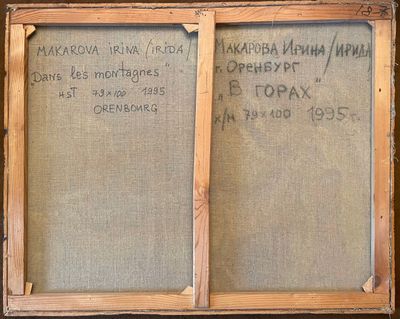 MAKAROVA IRINA /IRIDA/
„Dans les montagnes"
HST 79×100 1995
ORENBOURG
МАКАРОВА ИРИНА /ИРИДА
г. ОРЕНБУРГ
„В ГОРАХ"
х/м 79×100 1995 г.